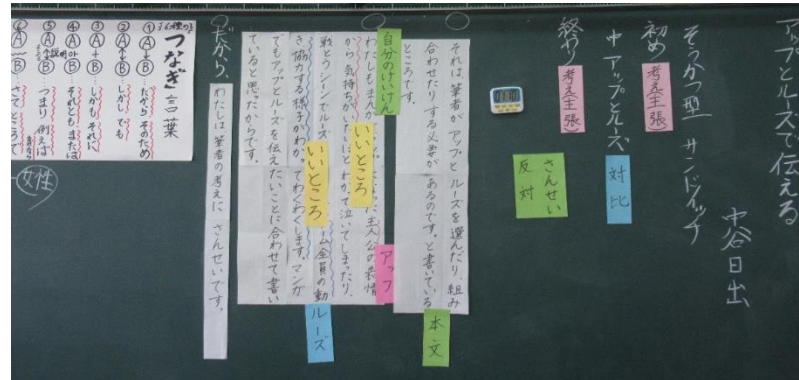 アップとルーズで伝える
中谷日出
そうかつ型 サンドイッチ
初め 考え(主張)
中 アップとルーズ 対比
終わり 考え(主張)
さんせい
反対
それは、筆者がアップとルーズを選んだり、組み
合わせたりする必要があるのです。と書いている
ところです。
本文
自分のけいけん
わたしもまんが
主人公の表情
アップ
から、気持ちが
わかって泣いてしまったり、
いいところ
戦とうシーンでルーズ
ーム全員の動
いいところ
き協力する様子がわかってわくわくします。マンガ
ルーズ
でもアップとルーズを伝えたいことに合わせて書い
ていると思ったからです。
だから、
わたしは筆者の考えにさんせいです。
つなぎ言葉
① A→B だから そのため
② A B しかし でも
③ A+B しかも それに
④ A B それとも または
⑤ A B 説明 つまり 例えば
⑥ A B さて ところで
女性